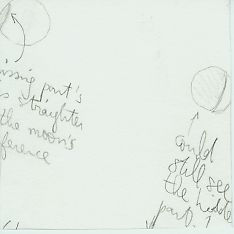 issing part's
is straighter
the moon's
ference
could
still see
the hidden
part. ?